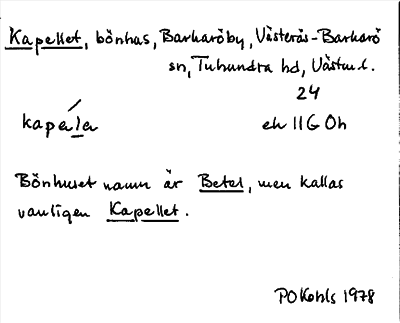 Kapellet, bönhus, Barkaröby, Västerås-Barkarö
sn, Tuhundra hd, Västml.
24
kapäla ek 11G 0h
Bönhuset namn är Betel, men kallas
vanligen Kapellet.
PO Kohls 1978